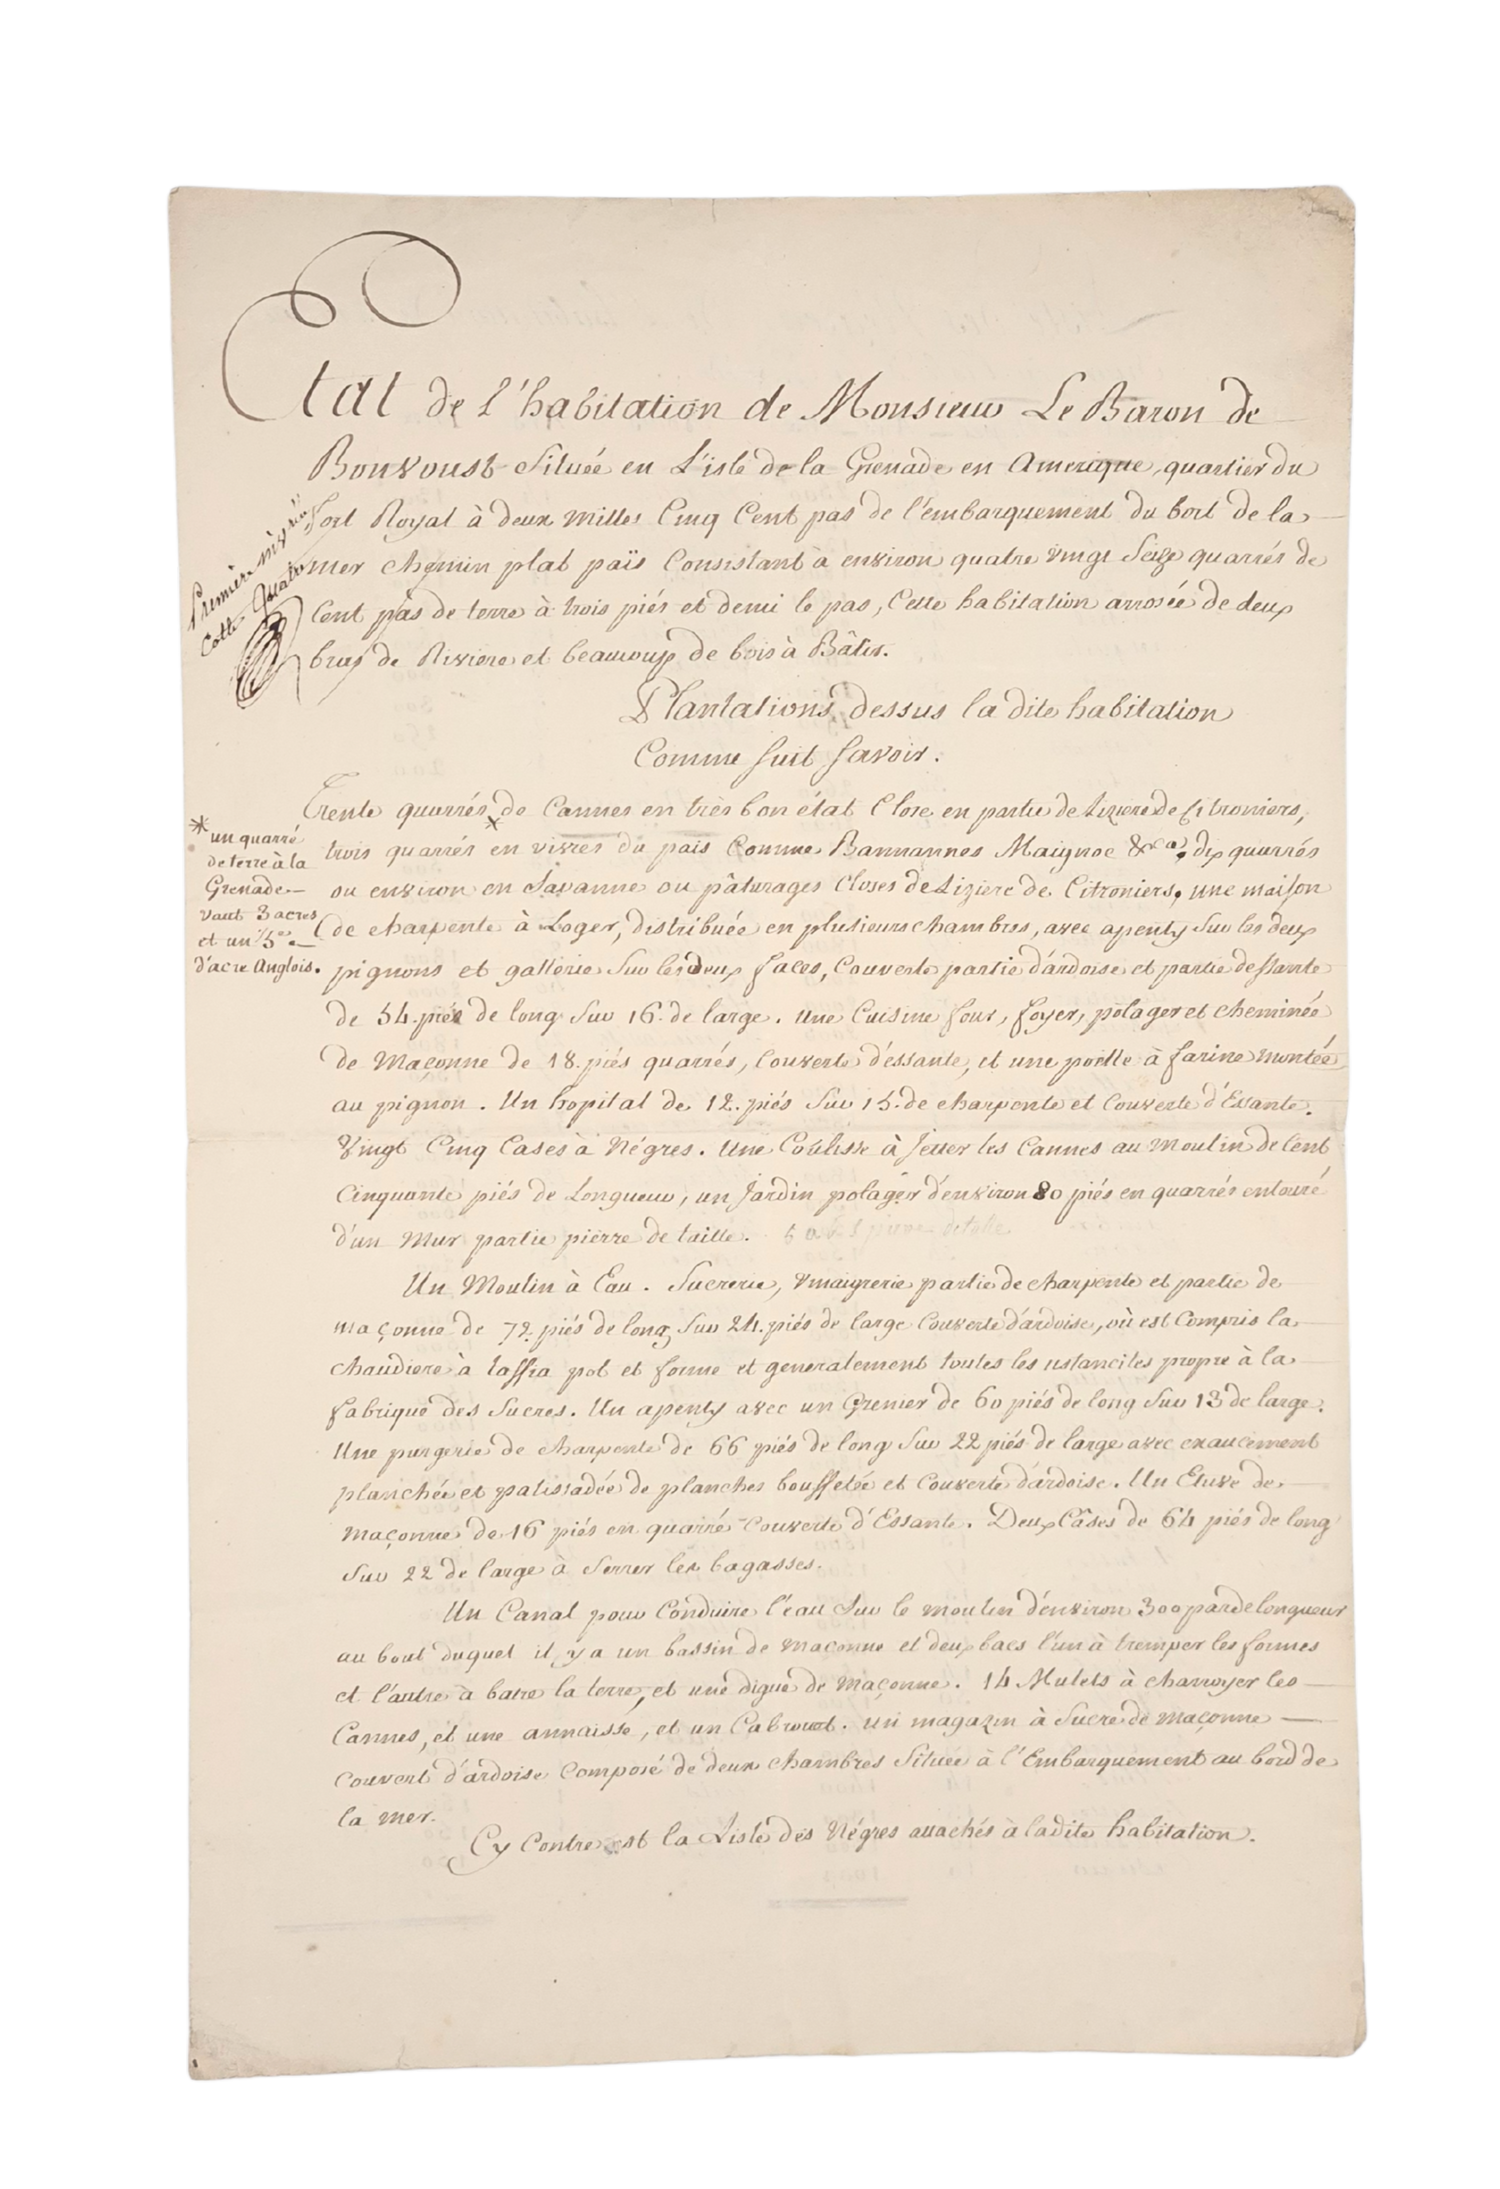 Etat de l'habitation de Monsieur Le Baron de
Bonvoust Située en L'isle de la Grenade en Amerique, quartier du
fort Royal à deux Milles Cinq Cent pas de l'embarquement du bort de la
mer chemin plat païs Consistant à environ quatre vingt Seize quarrés de
Cent pas de terre à trois piés et demi le pas, Cette habitation arrosée de deux
bras de Riviere et beaucoup de bois à Bâtir.
Premiere
Cotte
Plantations dessus la dite habitation
Comme suit savoir.
Trente quarrés de Cannes en très bon état Close en partie de Liziere de Citroniers,
trois quarrés * en vivres du païs Comme Bannannes Maignoc &ca, dix quarrés
ou environ en Savanne ou pâturages Closes de Liziere de Citroniers, une maison
de charpente à Loger, distribuée en plusieurs chambres, avec apenty Sur les deux
pignons et gallerie Sur les deux faces, Couverte partie d'ardoise et partie dessante
de 54 piés de long Sur 16 de large. une Cuisine four, foyer, potager et cheminée
de Maçonne de 18 piés quarrés, Couverte d'essante, et une poelle à farine montée
au pignon. Un hopital de 12 piés Sur 15 de charpente et Couverte d'Essante.
Vingt Cinq Cases à Négres. Une Coulisse à Jetter les Cannes au Moulin de Cent
Cinquante piés de Longueur, un Jardin potager d'environ 80 piés en quarrés entouré
d'un Mur partie pierre de taille.
* un quarré
de terre à la
Grenade
vaut 3 acres
et un 5e
d'acre Anglois.
Un Moulin à Eau. Sucrerie, vinaigrerie partie de charpente et partie de
maçonne de 72 piés de long Sur 24 piés de large Couverte d'ardoise, où est Compris la
chaudiere à taffia pot et forme et generalement toutes les ustanciles propre à la
fabrique des Sucres. Un apenty avec un Grenier de 60 piés de long Sur 13 de large.
Une purgerie de charpente de 66 piés de long Sur 22 piés de large avec exaucement
planchéé et palissadée de planches bouffetée et Couverte d'ardoise. Un Etuve de
maçonne de 16 piés en quarré Couverte d'Essante. Deux Câses de 64 piés de long
Sur 22 de large à Serrer les bagasses.
Un Canal pour Conduire l'eau Sur le moulin d'environ 300 pas de longueur
au bout duquel il y a un bassin de maconne et deux bacs l'un à tremper les formes
et l'autre à batre la terre, et une digue de maçonne. 14 Mulets à charroyer les
Cannes, et une annaisse, et un Cabrouet. un magazin à Sucre de maçonne
couvert d'ardoise Composé de deux chambres Située à l'Embarquement au bord de
la mer.
Cy Contre est la Liste des Négres attachés à ladite habitation.